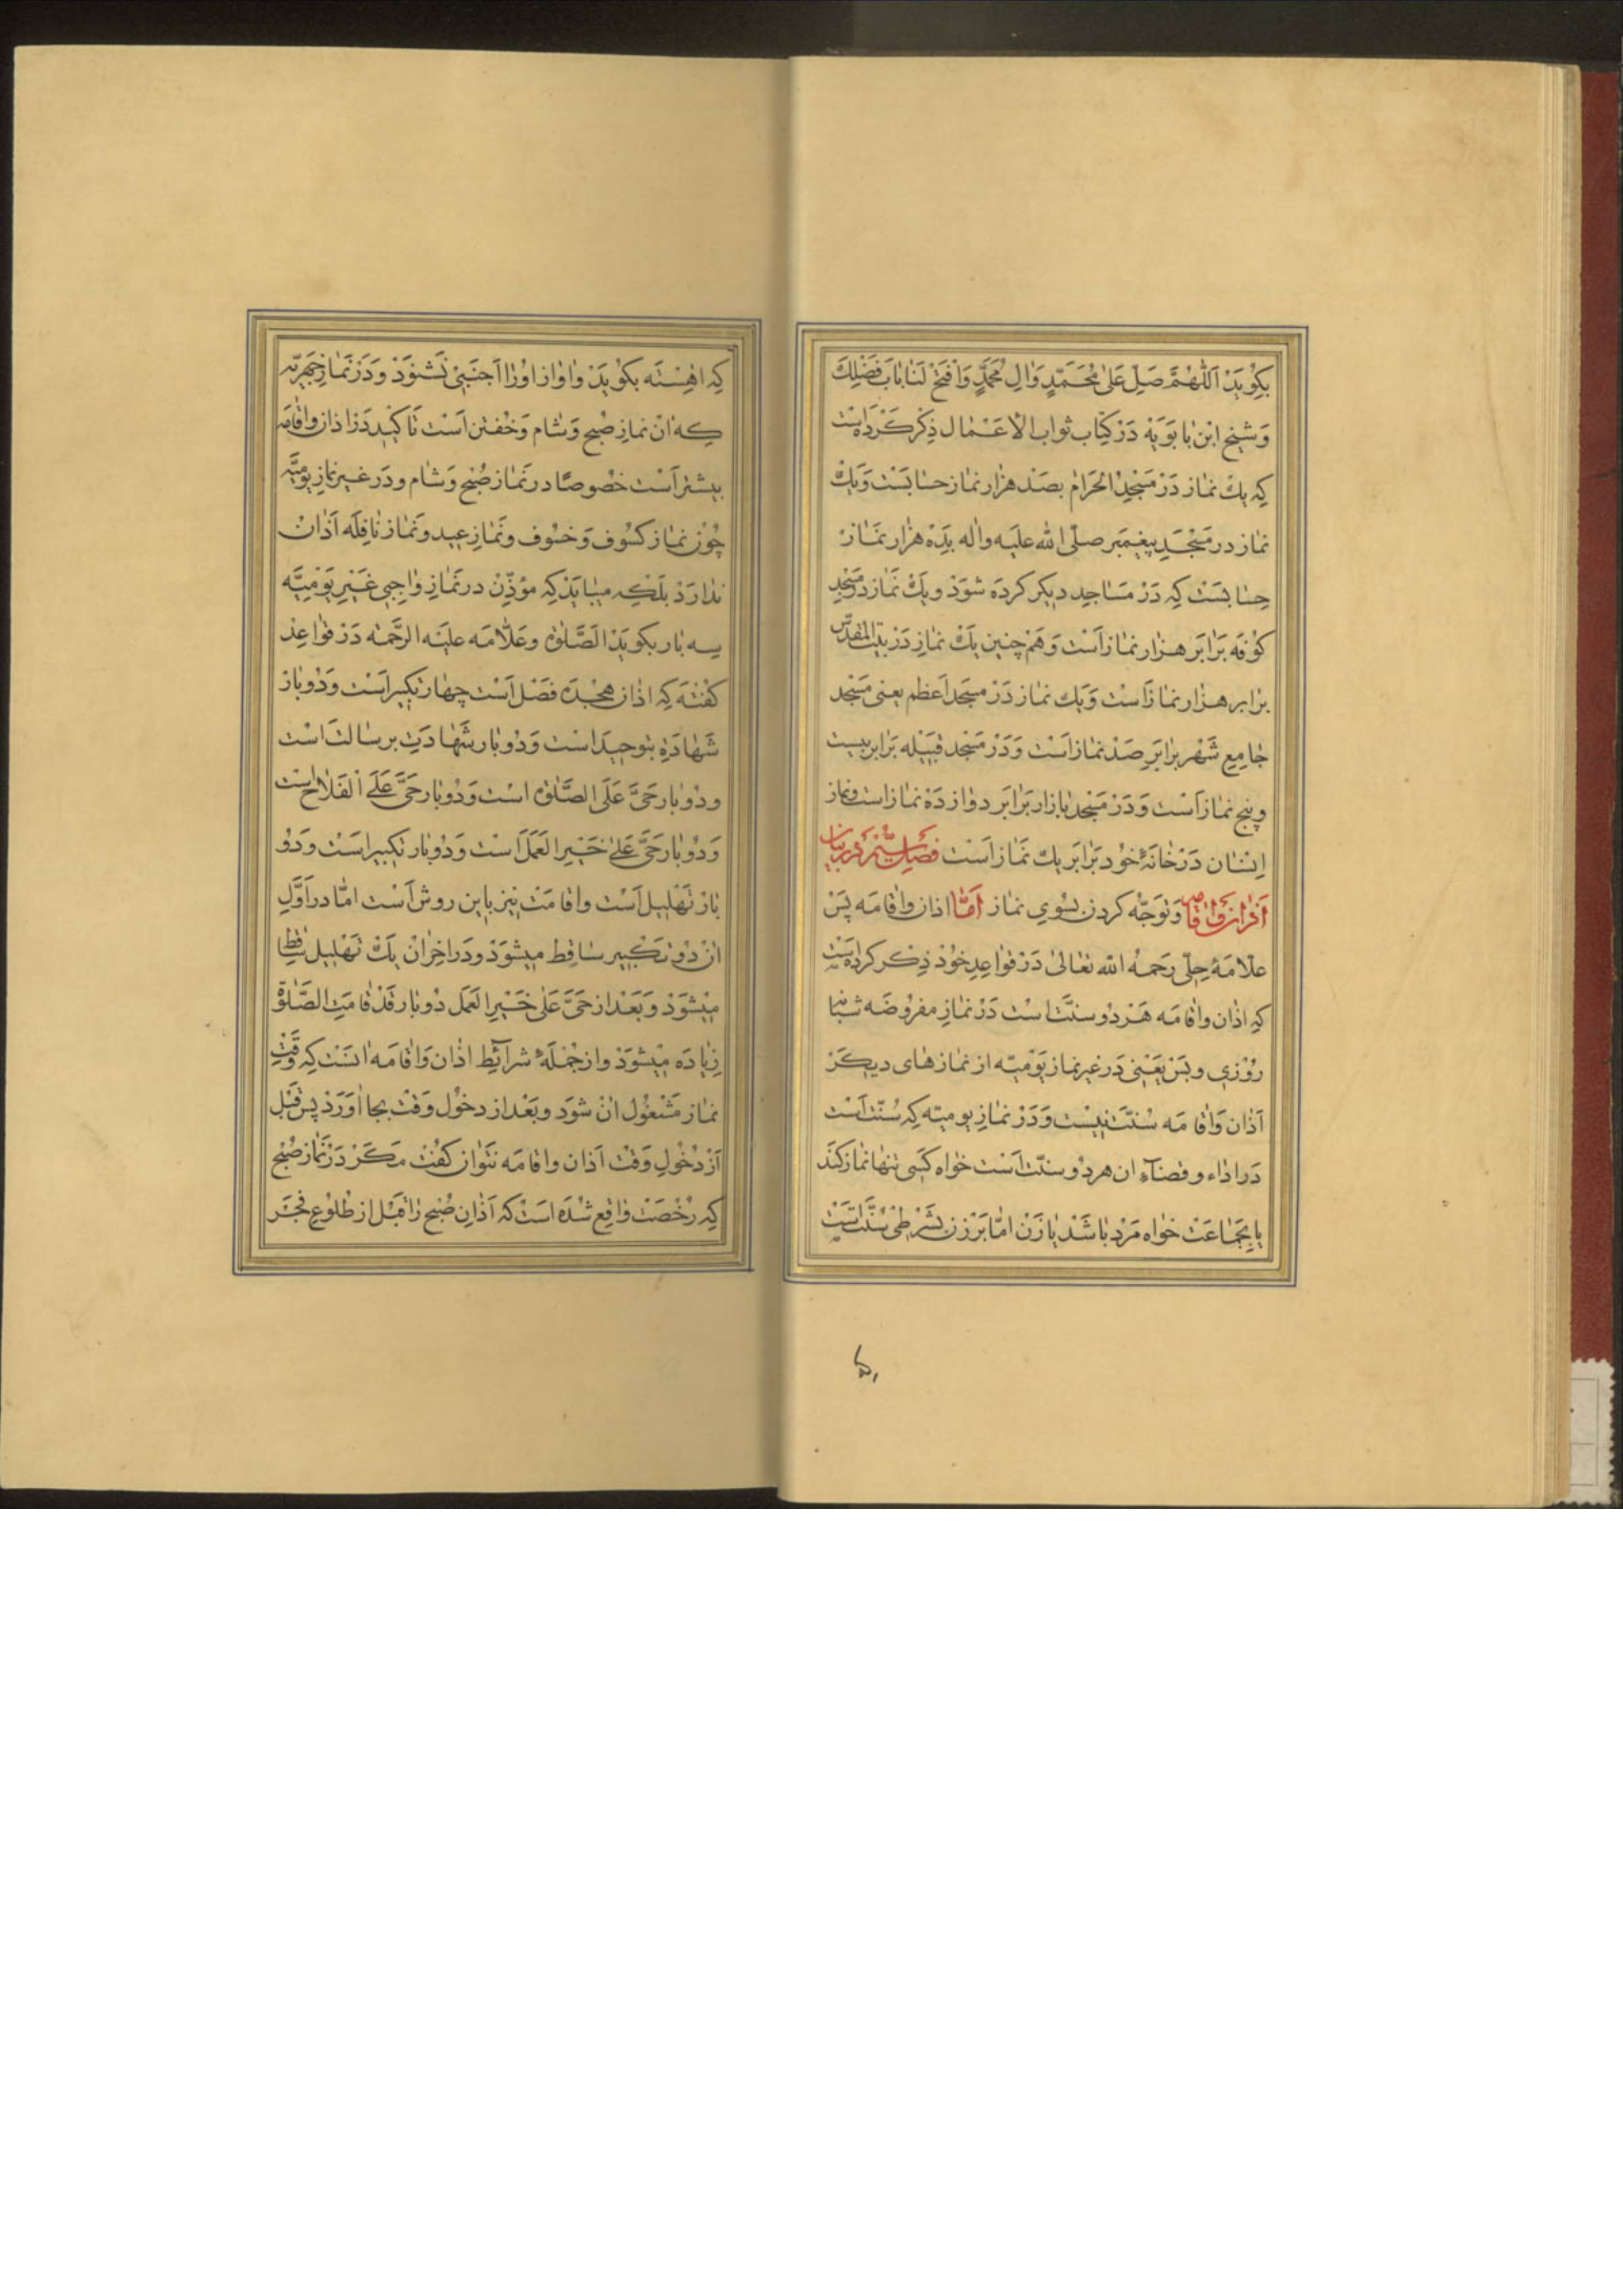 بکوید اَللّٰهُمَّ صَلِّ عَلیٰ مُحَمَّدٍ وَالِ مُحَمَّدٍ وَافْتَحْ لَنا بابَ فَضْلِكَ
وَشیخ ابن بابویه در کتاب ثواب الاعمال ذکر کرده است
که یك نماز در مسجد الحرام بصد هزار نماز حسابست ویك
نماز در مسجد پیغمبر صلّی الله علیه واله بده هزار نماز
حسابست که در مساجد دیکر کرده شود ویك نماز در مسجد
کوفه برابر هزار نماز است وهم چنین یك نماز در بیت المقدّس
برابر هزار نماز است ویك نماز در مسجد اعظم یعنی مسجد
جامع شهر برابر صد نماز است ودر مسجد قبیله برابر بیست
وپنج نماز است ودر مسجد بازار برابر دوازده نماز است ونماز
انسان در خانهٔ خود برابر یك نماز است فصل ششم در بیان
اذان واقامه وتوجّه کردن بسوی نماز امّا اذان واقامه پس
علامهٔ حلّی رحمه الله تعالیٰ در قواعد خود ذکر کرده است
که اذان واقامه هر دو سنّت است در نماز مفروضه شبانه
روزی وبس یعنی در غیر نماز یومیّه از نمازهای دیکر
آذان واقامه سنّت نیست ودر نماز یومیّه که سنّت است
در اداء وقضآء ان هر دو سنّت است خواه کسی تنها نماز کند
یا بجماعت خواه مرد باشد یا زن امّا بر زن بشرطی سنّت است
که اهسته بکوید واواز اورا اجنبی نشنود ودر نماز جهریّه
که ان نماز صبح وشام وخفتن است تاکید در اذان واقامه
بیشتر است خصوصًا در نماز صبح وشام ودر غیر نماز یومیّه
چون نماز کسوف وخسوف ونماز عید ونماز نافله آذان
ندارد بلکه میباید که مؤذّن در نماز واجبی غیر یومیّه
سه بار بکوید الصّلوٰة وعلّامه علیه الرّحمه در قواعد
کفته که اذان هجده فصل است چهار تکبیر است ودو بار
شهادة بتوحید است ودو بار شهادت برسالت است
ودو بار حیَّ عَلَی الصَّلوٰة است ودو بار حَیَّ عَلَی الفَلاح است
ودو بار حَیَّ عَلیٰ خَیرِ العَمَل است ودو بار تکبیر است ودو
بار تهلیل است واقامت نیز باین روش است امّا در اوّل
ان دو تکبیر ساقط میشود ودر اخر ان یك تهلیل ساقط
میشود وبعد از حَیَّ عَلیٰ خَیْرِ العَمَل دو بار قَدْ قامَتِ الصَّلوٰة
زیاده میشود واز جملهٔ شرآئط اذان واقامه انست که وقت
نماز مشغول ان شود وبعد از دخول وقت بجا اورد پس قبل
از دخول وقت آذان واقامه نتوان کفت مکر در نماز صبح
که رخصت واقع شده است که آذان صبح را قبل از طلوع فجر